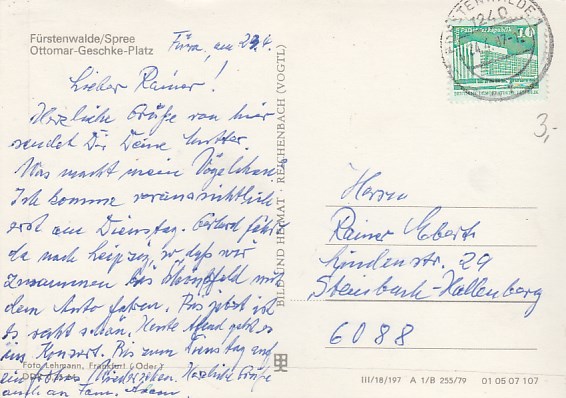 Fürstenwalde/Spree
Ottomar-Geschke-Platz
Lieber Rainer!
Herzliche Grüße von hier
sendet Dir Deine Mutter.
Was macht mein Vögelchen?
Ich komme voraussichtlich
erst am Dienstag. Gerhard fährt
da nach Leipzig, so daß wir
zusammen bis mit
dem Auto fahren. Bis jetzt ist
es recht schön. Heute Abend geht es
ein Konzert. Bis zum Dienstag und
ein frohes Wiedersehen. Herzliche Grüße
auch an Fam.
Foto Lehmann, Frankfurt (Oder)
BILD UND HEIMAT · REICHENBACH (VOGTL)
FÜRSTENWALDE 1
1240
10
DEUTSCHE DEMOKRATISCHE REPUBLIK
3,-
Herrn
Rainer Ebert
Lindenstr. 29
Steinbach-Hallenberg
6088
III/18/197 A 1/B 255/79 01 05 07 107